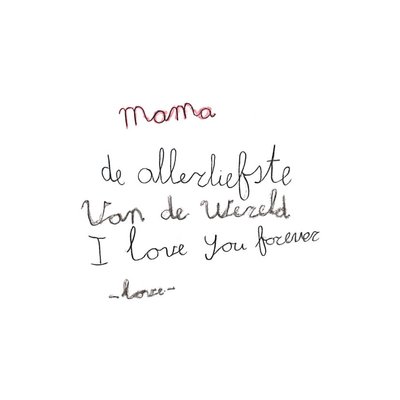 mama
de allerliefste
Van de Wereld
I love you forever